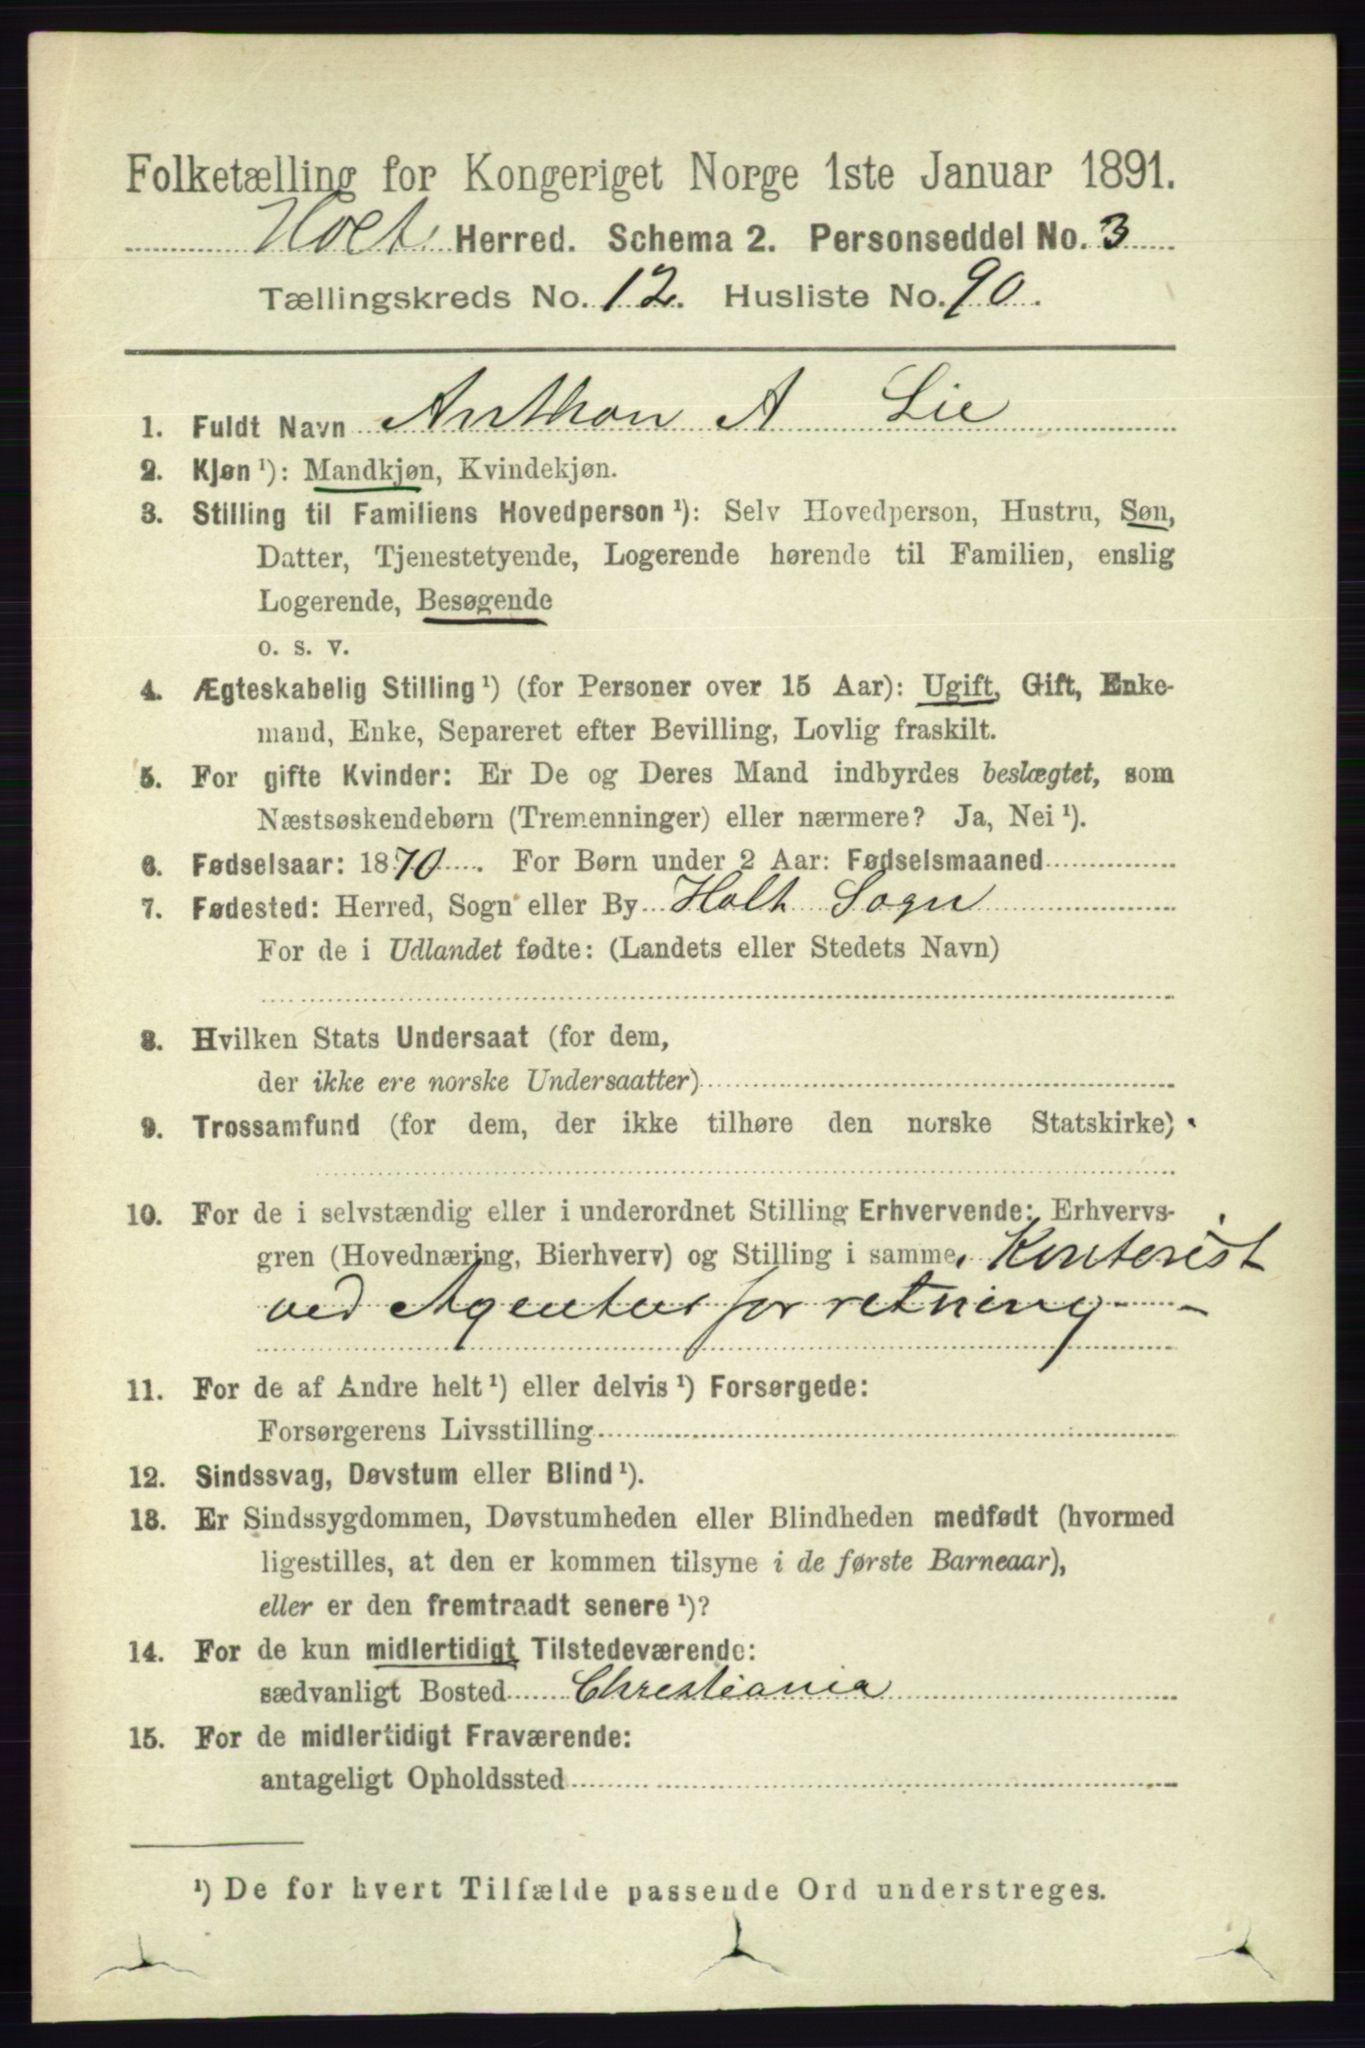 Folketælling for Kongeriget Norge 1ste Januar 1891.
Holt Herred. Schema 2. Personseddel No. 3
Tællingskreds No. 12. Husliste No. 90.
1. Fuldt Navn Anthon A Lie
2. Kjøn ¹): Mandkjøn, Kvindekjøn.
3. Stilling til Familiens Hovedperson ¹): Selv Hovedperson, Hustru, Søn,
Datter, Tjenestetyende, Logerende hørende til Familien, enslig
Logerende, Besøgende
o. s. v.
4. Ægteskabelig Stilling ¹) (for Personer over 15 Aar): Ugift, Gift, Enke-
mand, Enke, Separeret efter Bevilling, Lovlig fraskilt.
5. For gifte Kvinder: Er De og Deres Mand indbyrdes beslægtet, som
Næstsøskendebørn (Tremenninger) eller nærmere? Ja, Nei ¹).
6. Fødselsaar: 1870. For Børn under 2 Aar: Fødselsmaaned
7. Fødested: Herred, Sogn eller By Holt Sogn
For de i Udlandet fødte: (Landets eller Stedets Navn)
8. Hvilken Stats Undersaat (for dem,
der ikke ere norske Undersaatter)
9. Trossamfund (for dem, der ikke tilhøre den norske Statskirke)
10. For de i selvstændig eller i underordnet Stilling Erhvervende: Erhvervs-
gren (Hovednæring, Bierhverv) og Stilling i samme. Kontorist
ved Agentur forretning -
11. For de af Andre helt ¹) eller delvis ¹) Forsørgede:
Forsørgerens Livsstilling
12. Sindssvag, Døvstum eller Blind ¹).
13. Er Sindssygdommen, Døvstumheden eller Blindheden medfødt (hvormed
ligestilles, at den er kommen tilsyne i de første Barneaar),
eller er den fremtraadt senere ¹)?
14. For de kun midlertidigt Tilstedeværende:
sædvanligt Bosted Christiania
15. For de midlertidigt Fraværende:
antageligt Opholdssted
¹) De for hvert Tilfælde passende Ord understreges.